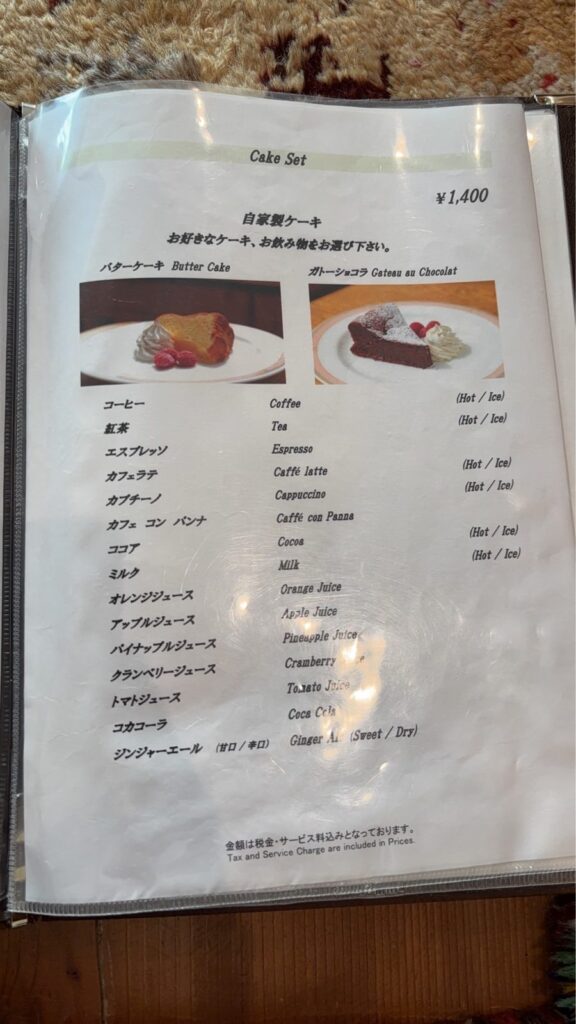 Cake Set
¥1,400
自家製ケーキ
お好きなケーキ、お飲み物をお選び下さい。
バターケーキ Butter Cake
ガトーショコラ Gateau au Chocolat
コーヒー Coffee (Hot / Ice)
紅茶 Tea (Hot / Ice)
エスプレッソ Espresso
カフェラテ Caffé latte (Hot / Ice)
カプチーノ Cappuccino (Hot / Ice)
カフェ コン パンナ Caffé con Panna
ココア Cocoa (Hot / Ice)
ミルク Milk (Hot / Ice)
オレンジジュース Orange Juice
アップルジュース Apple Juice
パイナップルジュース Pineapple Juice
クランベリージュース Cramberry
トマトジュース Tomato Juice
コカコーラ Coca Cola
ジンジャーエール (甘口 / 辛口) Ginger (Sweet / Dry)
金額は税金・サービス料込みとなっております。
Tax and Service Charge are included in Prices.